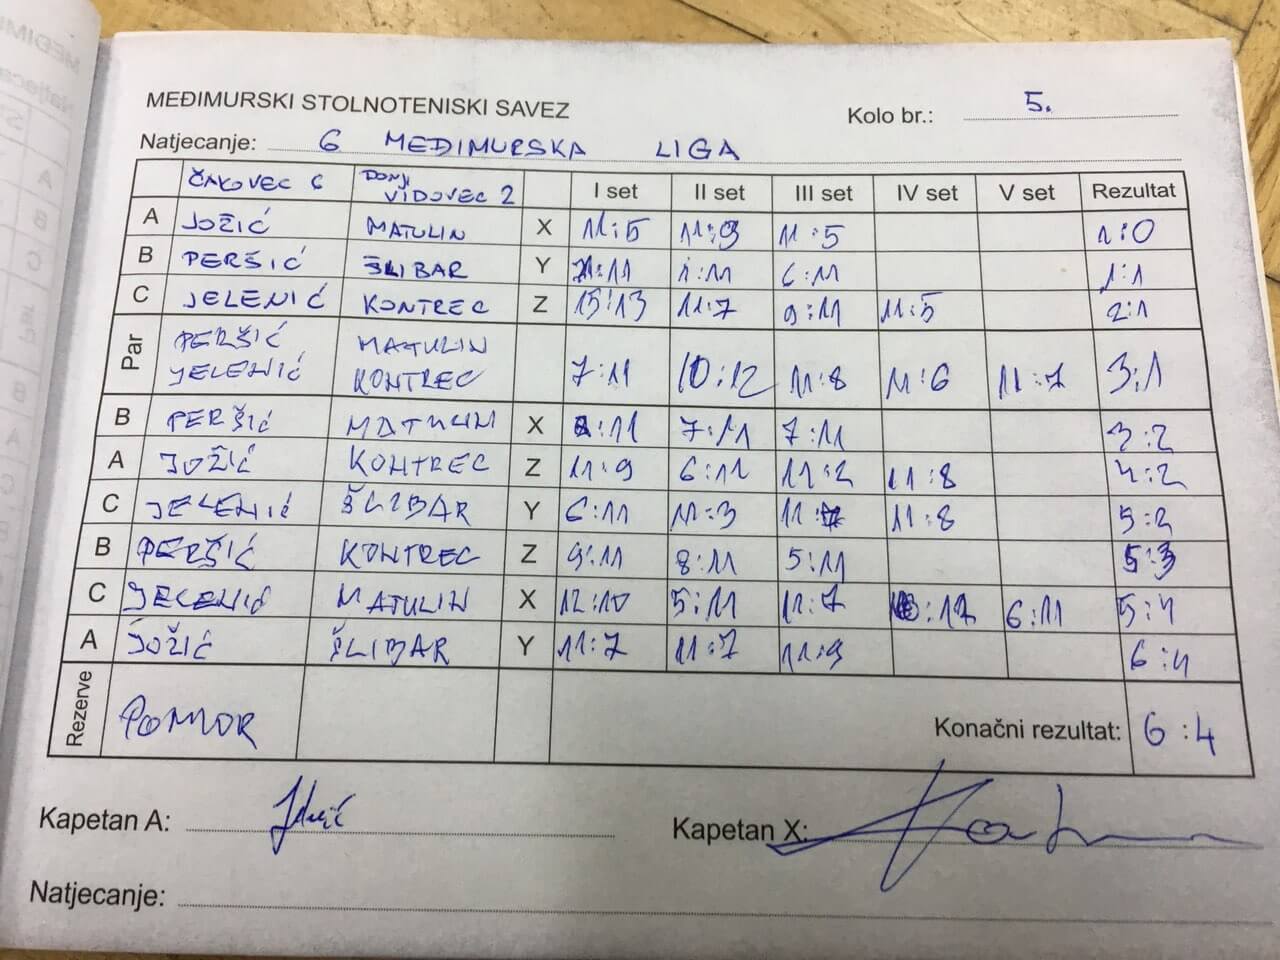 MEĐIMURSKI STOLNOTENISKI SAVEZ
Kolo br.: 5.
Natjecanje: 6 MEĐIMURSKA LIGA
ČAKOVEC 6 DONJI VIDOVEC 2 I set II set III set IV set V set Rezultat
A JOŽIĆ MATULIN X 11:5 11:9 11:5 1:0
B PERŠIĆ ŠLIBAR Y :11 1:11 6:11 1:1
C JELENIĆ KONTREC Z 15:13 11:7 9:11 11:5 2:1
Par PERŠIĆ JELENIĆ MATULIN KONTREC 7:11 10:12 11:8 11:6 11:7 3:1
B PERŠIĆ MATULIN X :11 7:11 7:11 3:2
A JOŽIĆ KONTREC Z 11:9 6:11 11:2 11:8 4:2
C JELENIĆ ŠLIBAR Y 6:11 11:3 11:7 11:8 5:2
B PERŠIĆ KONTREC Z 9:11 8:11 5:11 5:3
C JELENIĆ MATULIN X 12:10 5:11 11:7 10:12 6:11 5:4
A JOŽIĆ ŠLIBAR Y 11:7 11:7 11:9 6:4
Rezerve POMOR Konačni rezultat: 6:4
Kapetan A: Kapetan X:
Natjecanje: